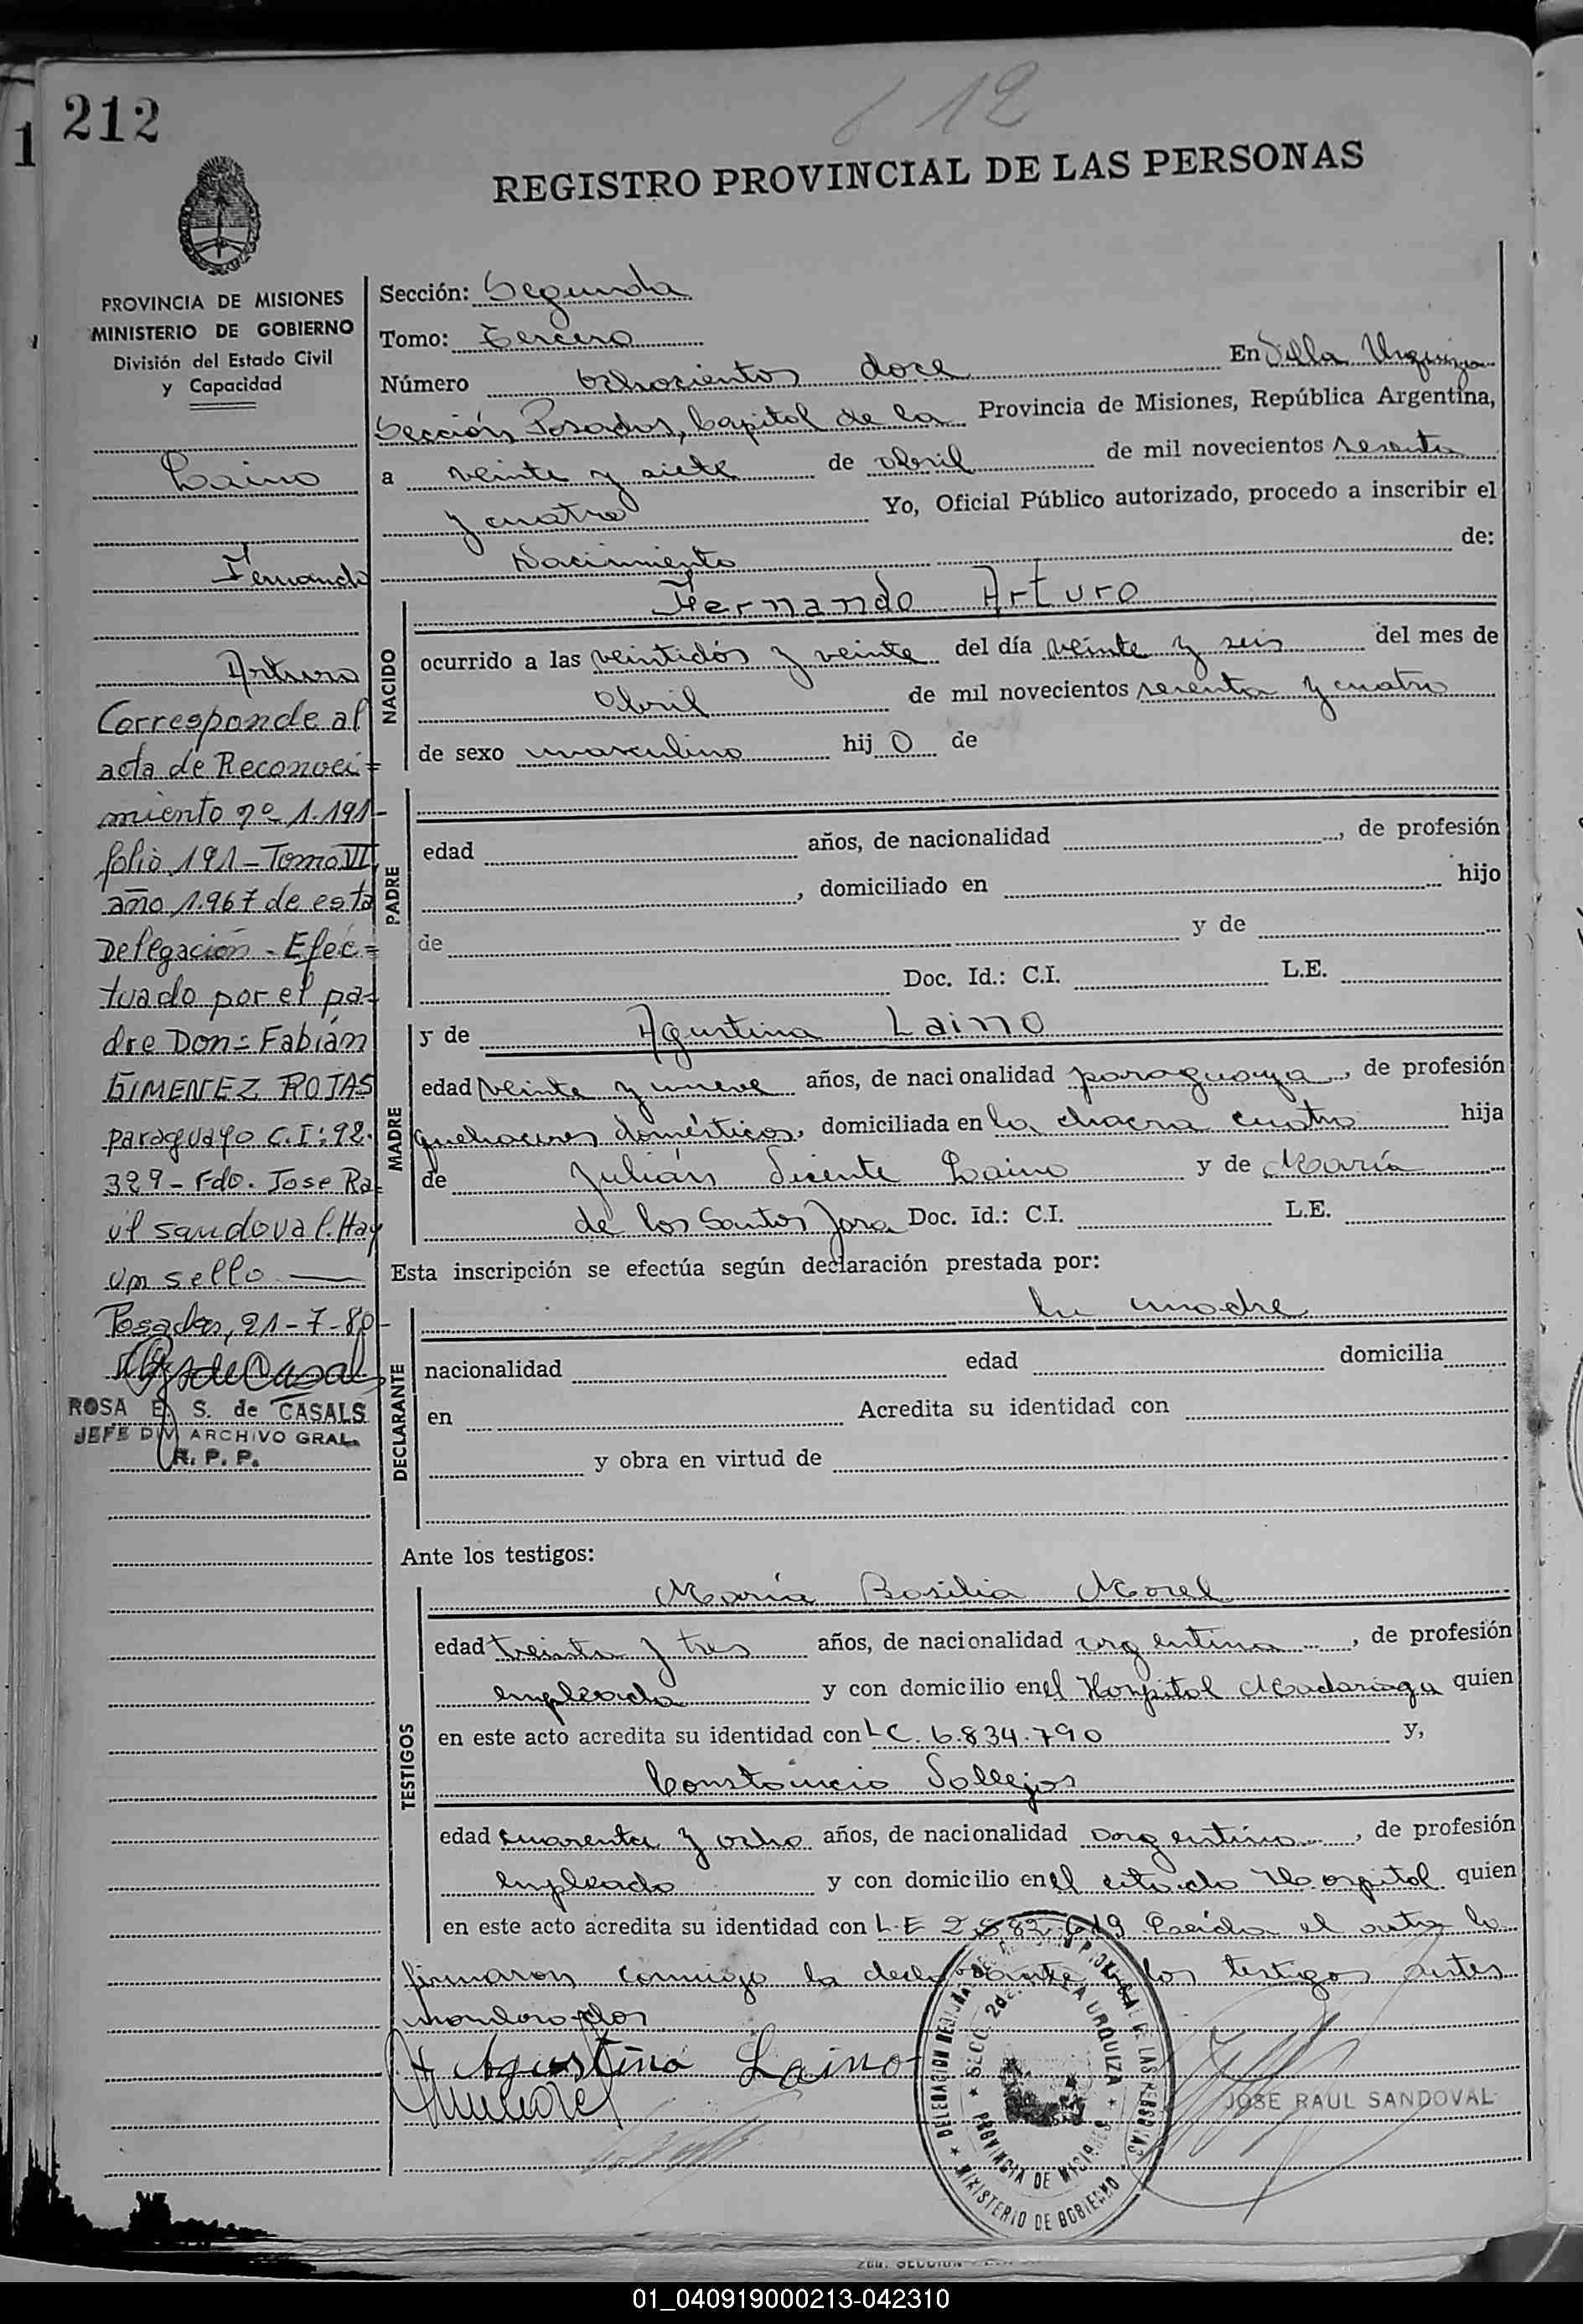 212
1
12
REGISTRO PROVINCIAL DE LAS PERSONAS
PROVINCIA DE MISIONES
MINISTERIO DE GOBIERNO
División del Estado Civil
y Capacidad
Laino
Fernando
Arturo
Corresponde al
acta de Reconoci=
miento nº 1.191-
folio 191 - Tomo VI
año 1.967 de esta
Delegación - Efec=
tuado por el pa=
dre Don = Fabián
GIMENEZ ROJAS
paraguayo C.I: 92.
329 - Fdo. Jose Ra=
ul Sandoval. Hay
un sello
Posadas, 21-7-80-
ROSA E. S. de CASALS
JEFE DIV. ARCHIVO GRAL.
R. P. P.
Sección: Segunda
Tomo: Tercero
Número ochocientos doce En Villa Urquiza
Sección Posadas, Capital de la Provincia de Misiones, República Argentina,
a veinte y siete de abril de mil novecientos sesenta
y cuatro Yo, Oficial Público autorizado, procedo a inscribir el
Nacimiento de:
NACIDO
Fernando Arturo
ocurrido a las veintidós y veinte del día veinte y seis del mes de
Abril de mil novecientos sesenta y cuatro
de sexo masculino hijo de
PADRE
edad años, de nacionalidad , de profesión
, domiciliado en hijo
de y de
Doc. Id.: C.I. L.E.
MADRE
y de Agustina Laino
edad veinte y nueve años, de nacionalidad paraguaya, de profesión
quehaceres domésticos, domiciliada en la chacra cuatro hija
de Julián Vicente Laino y de María
de los Santos Jara Doc. Id.: C.I. L.E.
Esta inscripción se efectúa según declaración prestada por:
DECLARANTE
la madre
nacionalidad edad domicilia
en Acredita su identidad con
y obra en virtud de
Ante los testigos:
TESTIGOS
María Basilia Morel
edad treinta y tres años, de nacionalidad argentina, de profesión
empleada y con domicilio en el Hospital Madariaga quien
en este acto acredita su identidad con L C. 6.834.790 y,
Constancio Vallejos
edad cuarenta y ocho años, de nacionalidad argentino, de profesión
empleado y con domicilio en el citado Hospital quien
en este acto acredita su identidad con L.E Leída el acta la
firmaron conmigo la declarante y los testigos antes
mencionados
Agustina Laino
JOSE RAUL SANDOVAL
SECC. 2da. VILLA URQUIZA
PROVINCIA DE MISIONES
MINISTERIO DE GOBIERNO
01_040919000213-042310